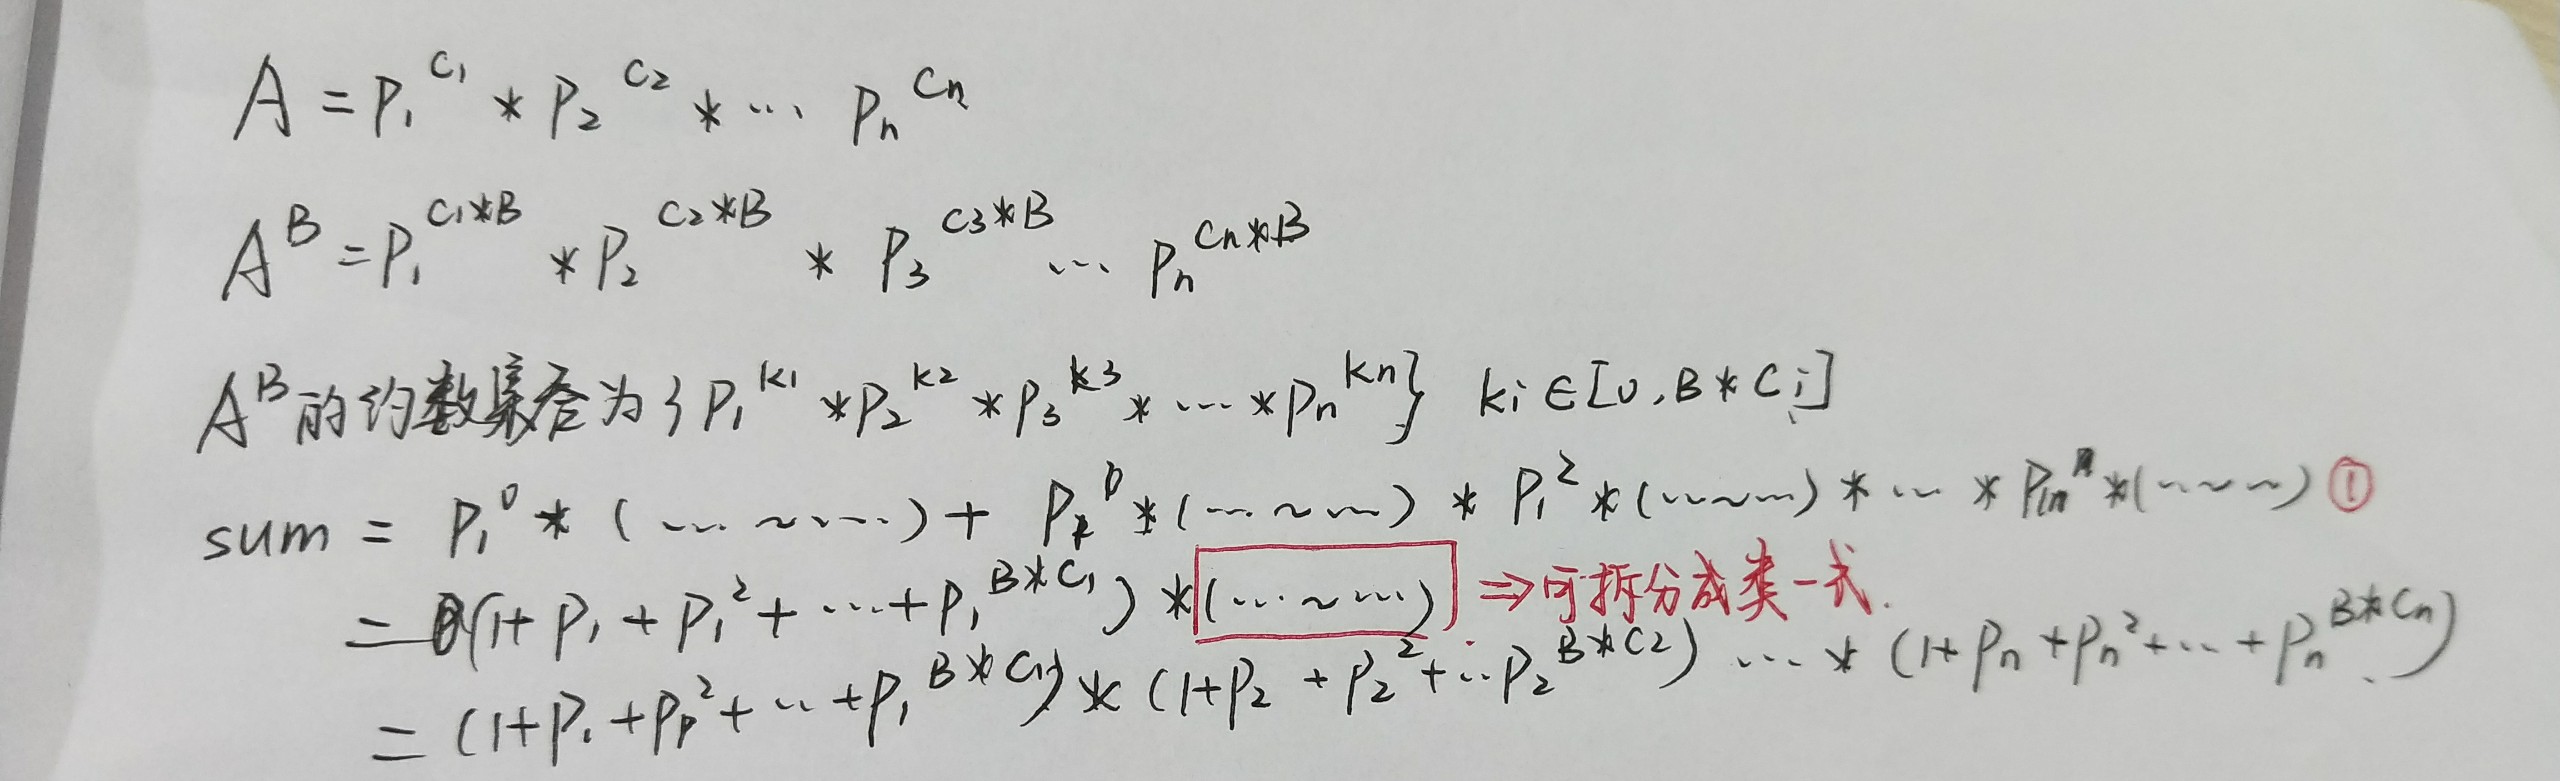 A = P₁^C₁ * P₂^C₂ * ... Pₙ^Cₙ
A^B = P₁^C₁*B * P₂^C₂*B * P₃^C₃*B ... Pₙ^Cₙ*B
A^B 的约数集合为 { P₁^k1 * P₂^k2 * P₃^k3 * ... * Pₙ^kn } ki ∈ [0, B * Ci]
sum = P₁^0 * (... ~ ...) + P₁^0 * (... ~ ...) * P₁^2 * (... ~ ...) * ... * P₁ₙ^n * (... ~ ...) ①
= (1 + P₁ + P₁^2 + ... + P₁^B*C₁) * (... ~ ...) ⇒ 可拆分成类一式.
= (1 + P₁ + P₁^2 + ... + P₁^B*C₁) * (1 + P₂ + P₂^2 + ... P₂^B*C₂) ... * (1 + Pₙ + Pₙ^2 + ... + Pₙ^B*Cₙ)